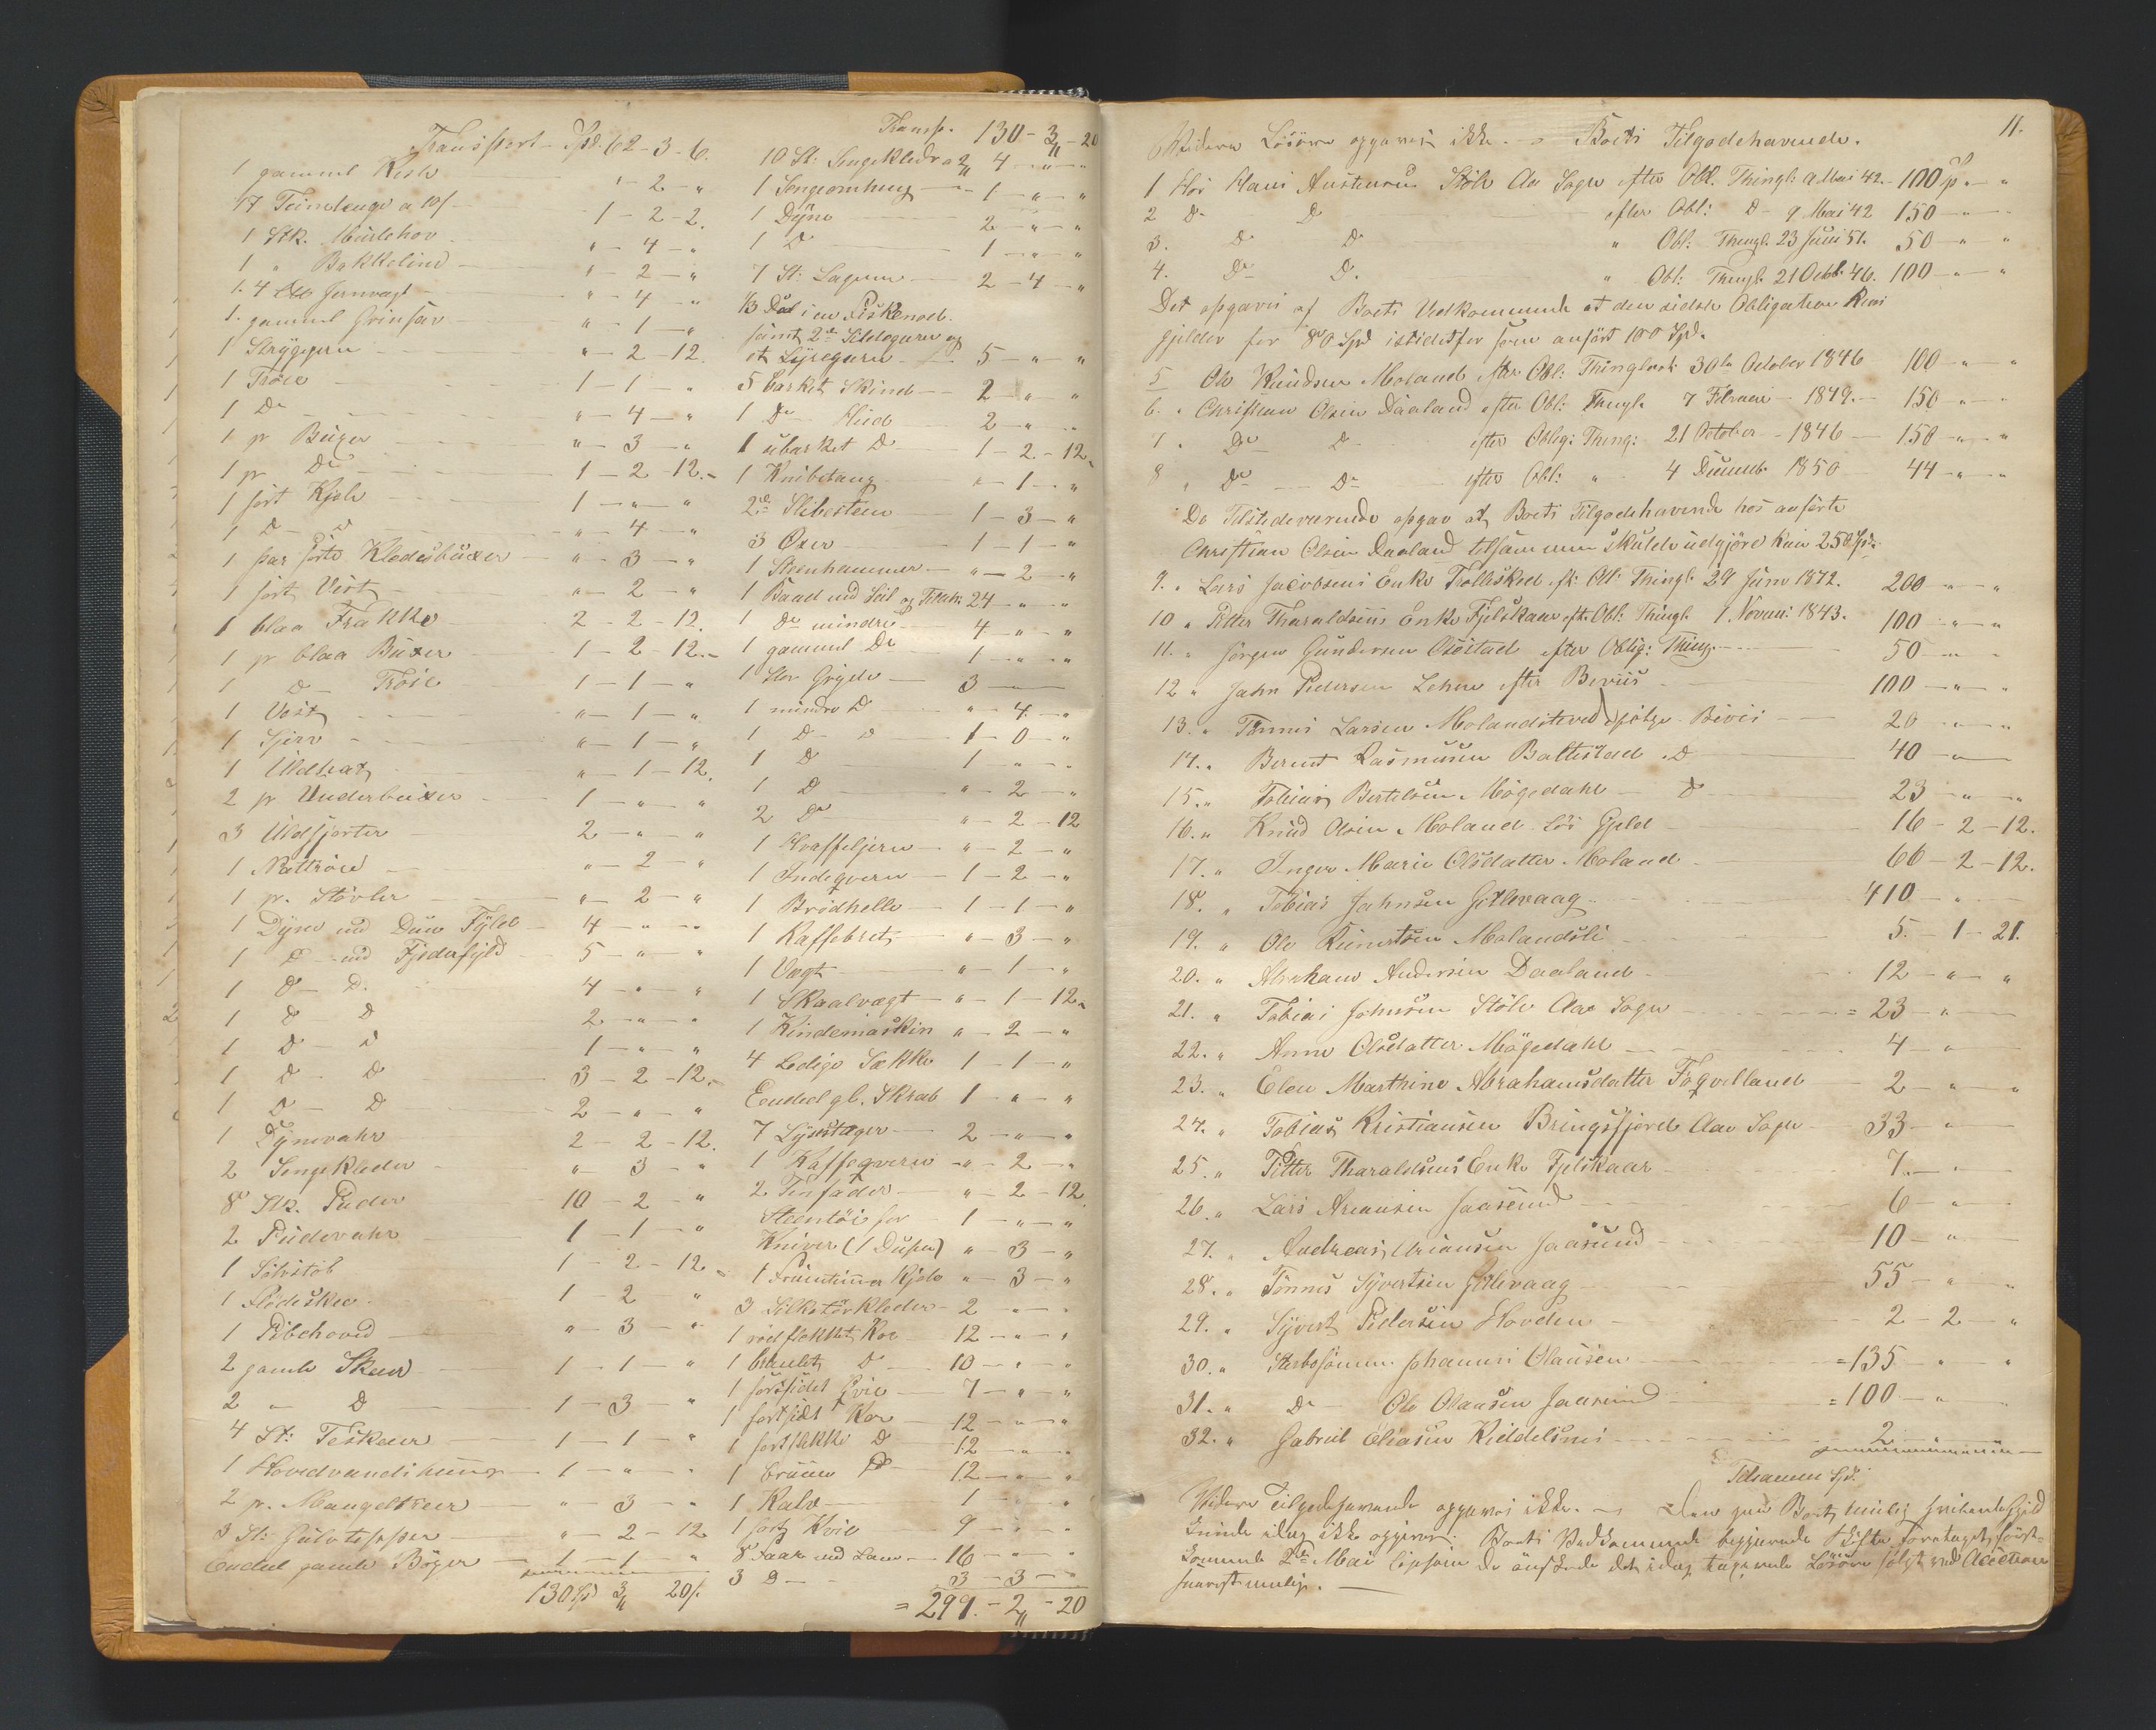 Transport Spd. 62-3-6.
1 gammel Kiste " - 2 - "
17 Teintenge a 10/ 1 - 2 - 2.
1 Stk. " - 4 - "
1 " " - 2 - "
" - 4 - "
1. gammel " - 1 - "
1 Strygjern " - 2 - 12.
1 Trøie 1 - 1 - "
1 Do " - 4 - "
1 pr Buxer " - 3 - "
1 pr Do 1 - 2 - 12.
1 sort Kjole 1 - " - "
1 D - D " - 4 - "
1 par sorte Klædesbuxer " - 3 - "
1 sort Vest " - 2 - "
1 blaa Frakke 2 - 2 - 12.
1 pr blaa Buxer 1 - 2 - 12.
1 D - Trøie 1 - 1 - "
1 Vest " - 1 - "
1 " - 1 - "
1 " - 1 - 12.
2 pr Underbuxer 1 - " - "
3 Uldskjorter 2 - " - "
1 Nattrøie " - 2 - "
1 pr. Støvler " - 2 - "
1 Dyne med Duun Fyld 4 - " - "
1 D - med Fjederfyld 5 - " - "
1 D - D. 4 - " - "
1 D D 2 - " - "
1 D - D 1 - " - "
1 D - D 3 - 2 - 12.
1 D - D 2 - " - "
1 Dynevahr 2 - 2 - 12.
2 Sengeklæder " - 3 - "
8 Stk. Puder 10 - 2 - "
2 Pudevahr 1 - 1 - "
1 1 - 2 - 12.
1 Flødeskee 1 - 2 "
1 Pibehoved " - 3 - "
2 gamle Skeer 1 - 1 - "
2 " D 1 - 3 - "
4 St: Teskeer 1 - 1 - "
1 Hovedvandshuus 1 - " - "
2 pr. " - 3 - "
3 St: " - 2 - 12
Endeel gamle Bøger 1 - 1 "
130 Spd 3 20/.
Transp. 130 - 3 - 20
10 St: Sengeklæder a 2 4 - " - "
1 Sengeomhæng 1 - " - "
1 Dyne 2 - " - "
1 D 1 - " - "
7 St: Lagener 2 - 4 - "
1/3 Deel i en Fiskenod
samt 2de Sildegarn og
et 5 - " - "
5 barket Skind 2 - " - "
1 Do Hud 2 - " - "
1 ubarket D 1 - 2 - 12.
1 Knibetang " - 1 - "
2de Slibesteen 1 - 3 - "
3 Øxer 1 - 1 - "
1 Steenhammer " - 2 - "
1 Baad med Seil og 24 - " - "
1 Do mindre 4 - " - "
1 gammel Do 1 - " - "
1 Stor Gryde 3 - -
1 mindre D " - 4 - "
1 D - D 1 - 0 - "
1 D 1 - " - "
1 D " - 2 - "
2 Do " - 2 - 12
1 " - 2 - "
1 1 - 2 - "
1 Brødhelle 1 - 1 - "
1 Kaffebret " - 3 - "
1 Vægt " - 1 - "
1 Skaalvægt " - 1 - 12.
1 " - 2 - "
4 Ledige Sække 1 - 1 - "
Eendeel gl. Skrab 1 - " - "
7 Lysestager 2 - " - "
1 Kaffeqvern " - 2 - "
2 Tinfader " - 2 - 12
Steentøi for 1 - " - "
Kniver (1 Dusin) " - 3 - "
1 Fruentimmer Kjole " - 3 - "
3 Silketørklæder 2 - " - "
1 rødflekket Koe 12 - " - "
1 D 10 - " - "
1 7 - " - "
1 Koe 12 - " - "
1 D 12 - " - "
1 bruun D 12 - " - "
1 Kalv 1 - " - "
1 sort Kvie 9 - " - "
8 Faar med Lam 16 - " - "
3 D 3 - 3 - "
= 299. - 2 - 20
11.
Videre Løsøre opgaves ikke. - Boets Tilgodehavende.
1 Hos Hans Austensen Støle Aa Sogn efter Obl. Thingl: 9 Mai 42 - 100 Sp. - "
2 D - D efter Obl: D - 9 Mai 42 150 - " -
3. D D " Obl: Thingl. 23 Juni 51. 50 - " - "
4. Do D. " Obl: Thingl. 21 Octbr. 46. 100 - " - "
Det opgaves af Boets Vedkommende at den sidste Obligation kun
gjelder for 80 Spd istedetfor som anført 100 Spd.
5 Ole Knudsen Moland efter Obl: Thinglæst 30te October 1846 100 - " - "
6. " Christian Olsen Daaland efter Obl: Thingl. 7 Februar - 1849. - 150 - " - "
7. Do D efter Oblig: Thing: 21 October - 1846 - 150 - " - "
8 " Do - Do efter Obl: " 4 Decemb. 1850 44 - " - "
De Tilstedeværende opgav at Boets Tilgodehavende hos anførte
Christian Olsen Daaland tilsammen skulde udgjøre kun 250 Spd.
9. " Lars Jacobsens Enke eft: Obl: Thingl: 29 Juni 1842. 200 - " - "
10 " Petter Tharaldsens Enke Fjelskaar eft. Obl: Thingl. 1 Novem: 1843. 100 - " - "
11. " Jørgen Gundersen efter Oblig: Thing. 50 - " -
12 " Jahn Pedersen Lehne efter Beviis 100 - " - "
13. " Tønnes Larsen Molandsveed ifølge Beviis 20 - " - "
14. " Bernt Rasmusen D 40 - " -
15. " Tobias Bertelsen Høgedahl - D 23 - " - "
16. " Knud Olsen Moland Løs Gjeld 16 - 2 - 12.
17. " Inger Marie Olsdatter Moland 66 - 2 - 12.
18. " Tobias Jahnsen Gitlevaag 410 - " -
19. " Ole Reinertsen Molandslie 5. - 1 - 21.
20. " Abraham Andersen Daaland 12 - " - "
21. " Tobias Johnsen Støle Aae Sogn = 23 - " -
22. " Anne Olsdatter Høgedahl 4 - " -
23. " Elen Marthine Abrahamsdatter 2 - " - "
24. " Tobias Kristiansen Bringsfjord Aae Sogn 33 - " -
25. " Petter Tharaldsens Enke Fjelskaar 7. - " -
26. " Lars Arensen Jaasund 6 - " -
27. " Andreas Jaasund 10 - " -
28. " Tønnes Syvertsen Gitlevaag 55 - " "
29. " Syvert Pedersen Hovden 2 - 2 - "
30. " Johannes Olausen = 135 - " - "
31. " Do - Ole Olausen Jaasund = 100 - "
32. " Gabriel Eliasen 2 -
Tilsammen Spd.
Videre Tilgodehavende opgaves ikke. - Den paa Boet mulig hvilende Gjeld
kunde idag ikke opgives. Boets Vedkommende begjærede Skifte foretaget først-
kommende 2den Mai ligesom de ønskede det idag Løsøre solgt ved Auction
snarest mulig. -